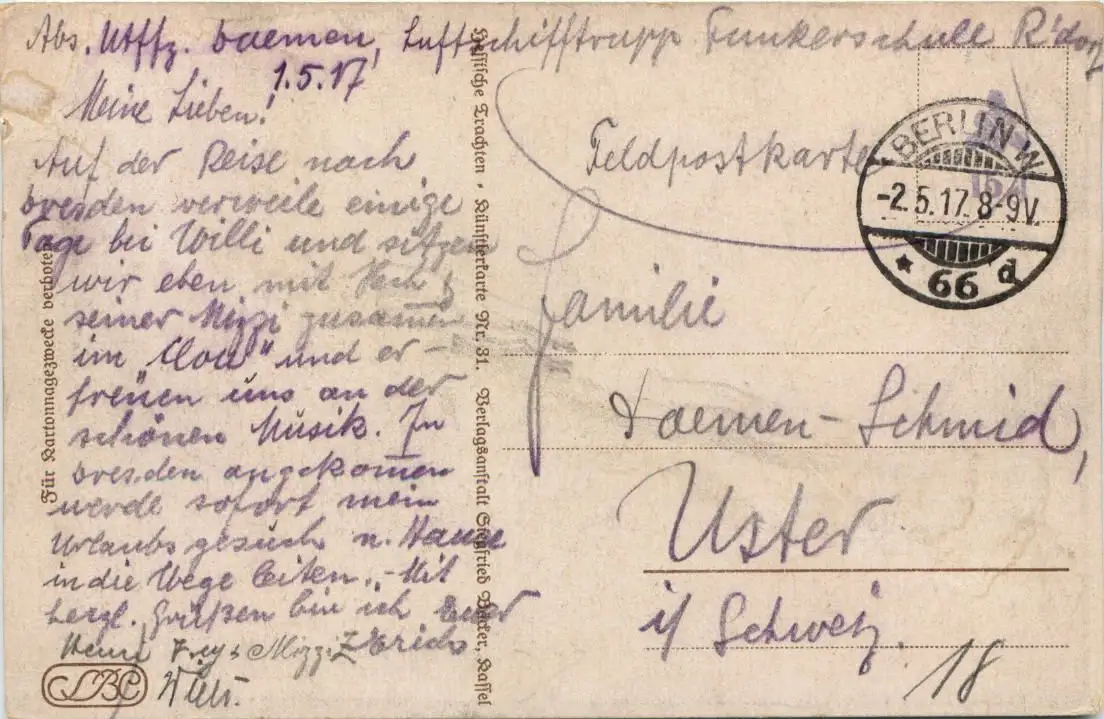 Abs. Utffz. Daemen, Luftschifftrupp Funkerschule R'dorf
1.5.17
Meine Lieben!
Auf der Reise nach
Dresden verweile einige
Tage bei Willi und sitzen
wir eben mit
seiner Mizzi zusamen
im "Clou" und er-
freuen uns an der
schönen Musik. In
Dresden angekomen
werde sofort mein
Urlaubsgesuch n. Hause
in die Wege leiten. - Mit
herzl. Grüßen bin ich Euer
Erich
Mizzi
Willi.
Für Kartonnagezwecke verboten
Hessische Trachten · Künstlerkarte Nr. 31. Verlagsanstalt Siegfried Becker, Kassel
Feldpostkarte
BERLIN W
-2.5.17.8-9V.
* 66 d
Familie
Daemen-Schmid,
Uster
i/ Schweiz.
18